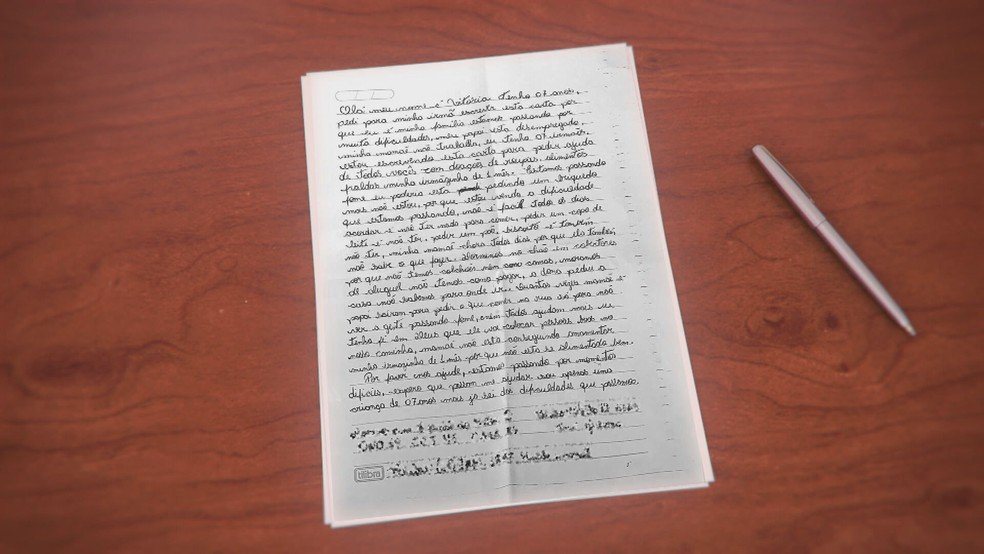 Olá meu nome é Vitória tenho 07 anos,
pedi para minha irmã escrever esta carta por
que eu e minha família estamos passando por
muita dificuldades, meu papai esta desempregado,
minha mamãe não trabalha, eu tenho 07 irmãos,
estou escrevendo esta carta para pedir ajuda
de todos vocês com doações de roupas, alimentos
fraldas minha irmãzinha de 1 mês. Estamos passando
fome eu poderia esta pedindo um brinquedo
mais não estou, por que estou vendo a dificuldade
que estamos passando, não é facil todos os dias
acordar e não ter nada para comer, pedir um copo de
leite e não ter, pedir um pão, biscoito e também
não ter, minha mamãe chora todos dias por que ela também
não sabe o que fazer. dormimos no chão em cobertores
por que não temos colchões nem camas, moramos
de aluguel não temos como pagar, a dona pediu a
casa não sabemos para onde ir. Quantas vezes mamãe e
papai sairam para pedir o que comer na rua só para não
ver a gente passando fome, nem todos ajudam mais eu
tenho fé em Deus que ele vai colocar pessoas boas no
nosso caminho, mamãe não esta conseguindo amamentar
minha irmãzinha de 1 mês por que não esta se alimentado bem.
Por favor nos ajude, estamos passando por momentos
difíceis, espero que possam me ajudar sou apenas uma
criança de 07 anos mais ja sei das dificuldades que passamos.
tilibra